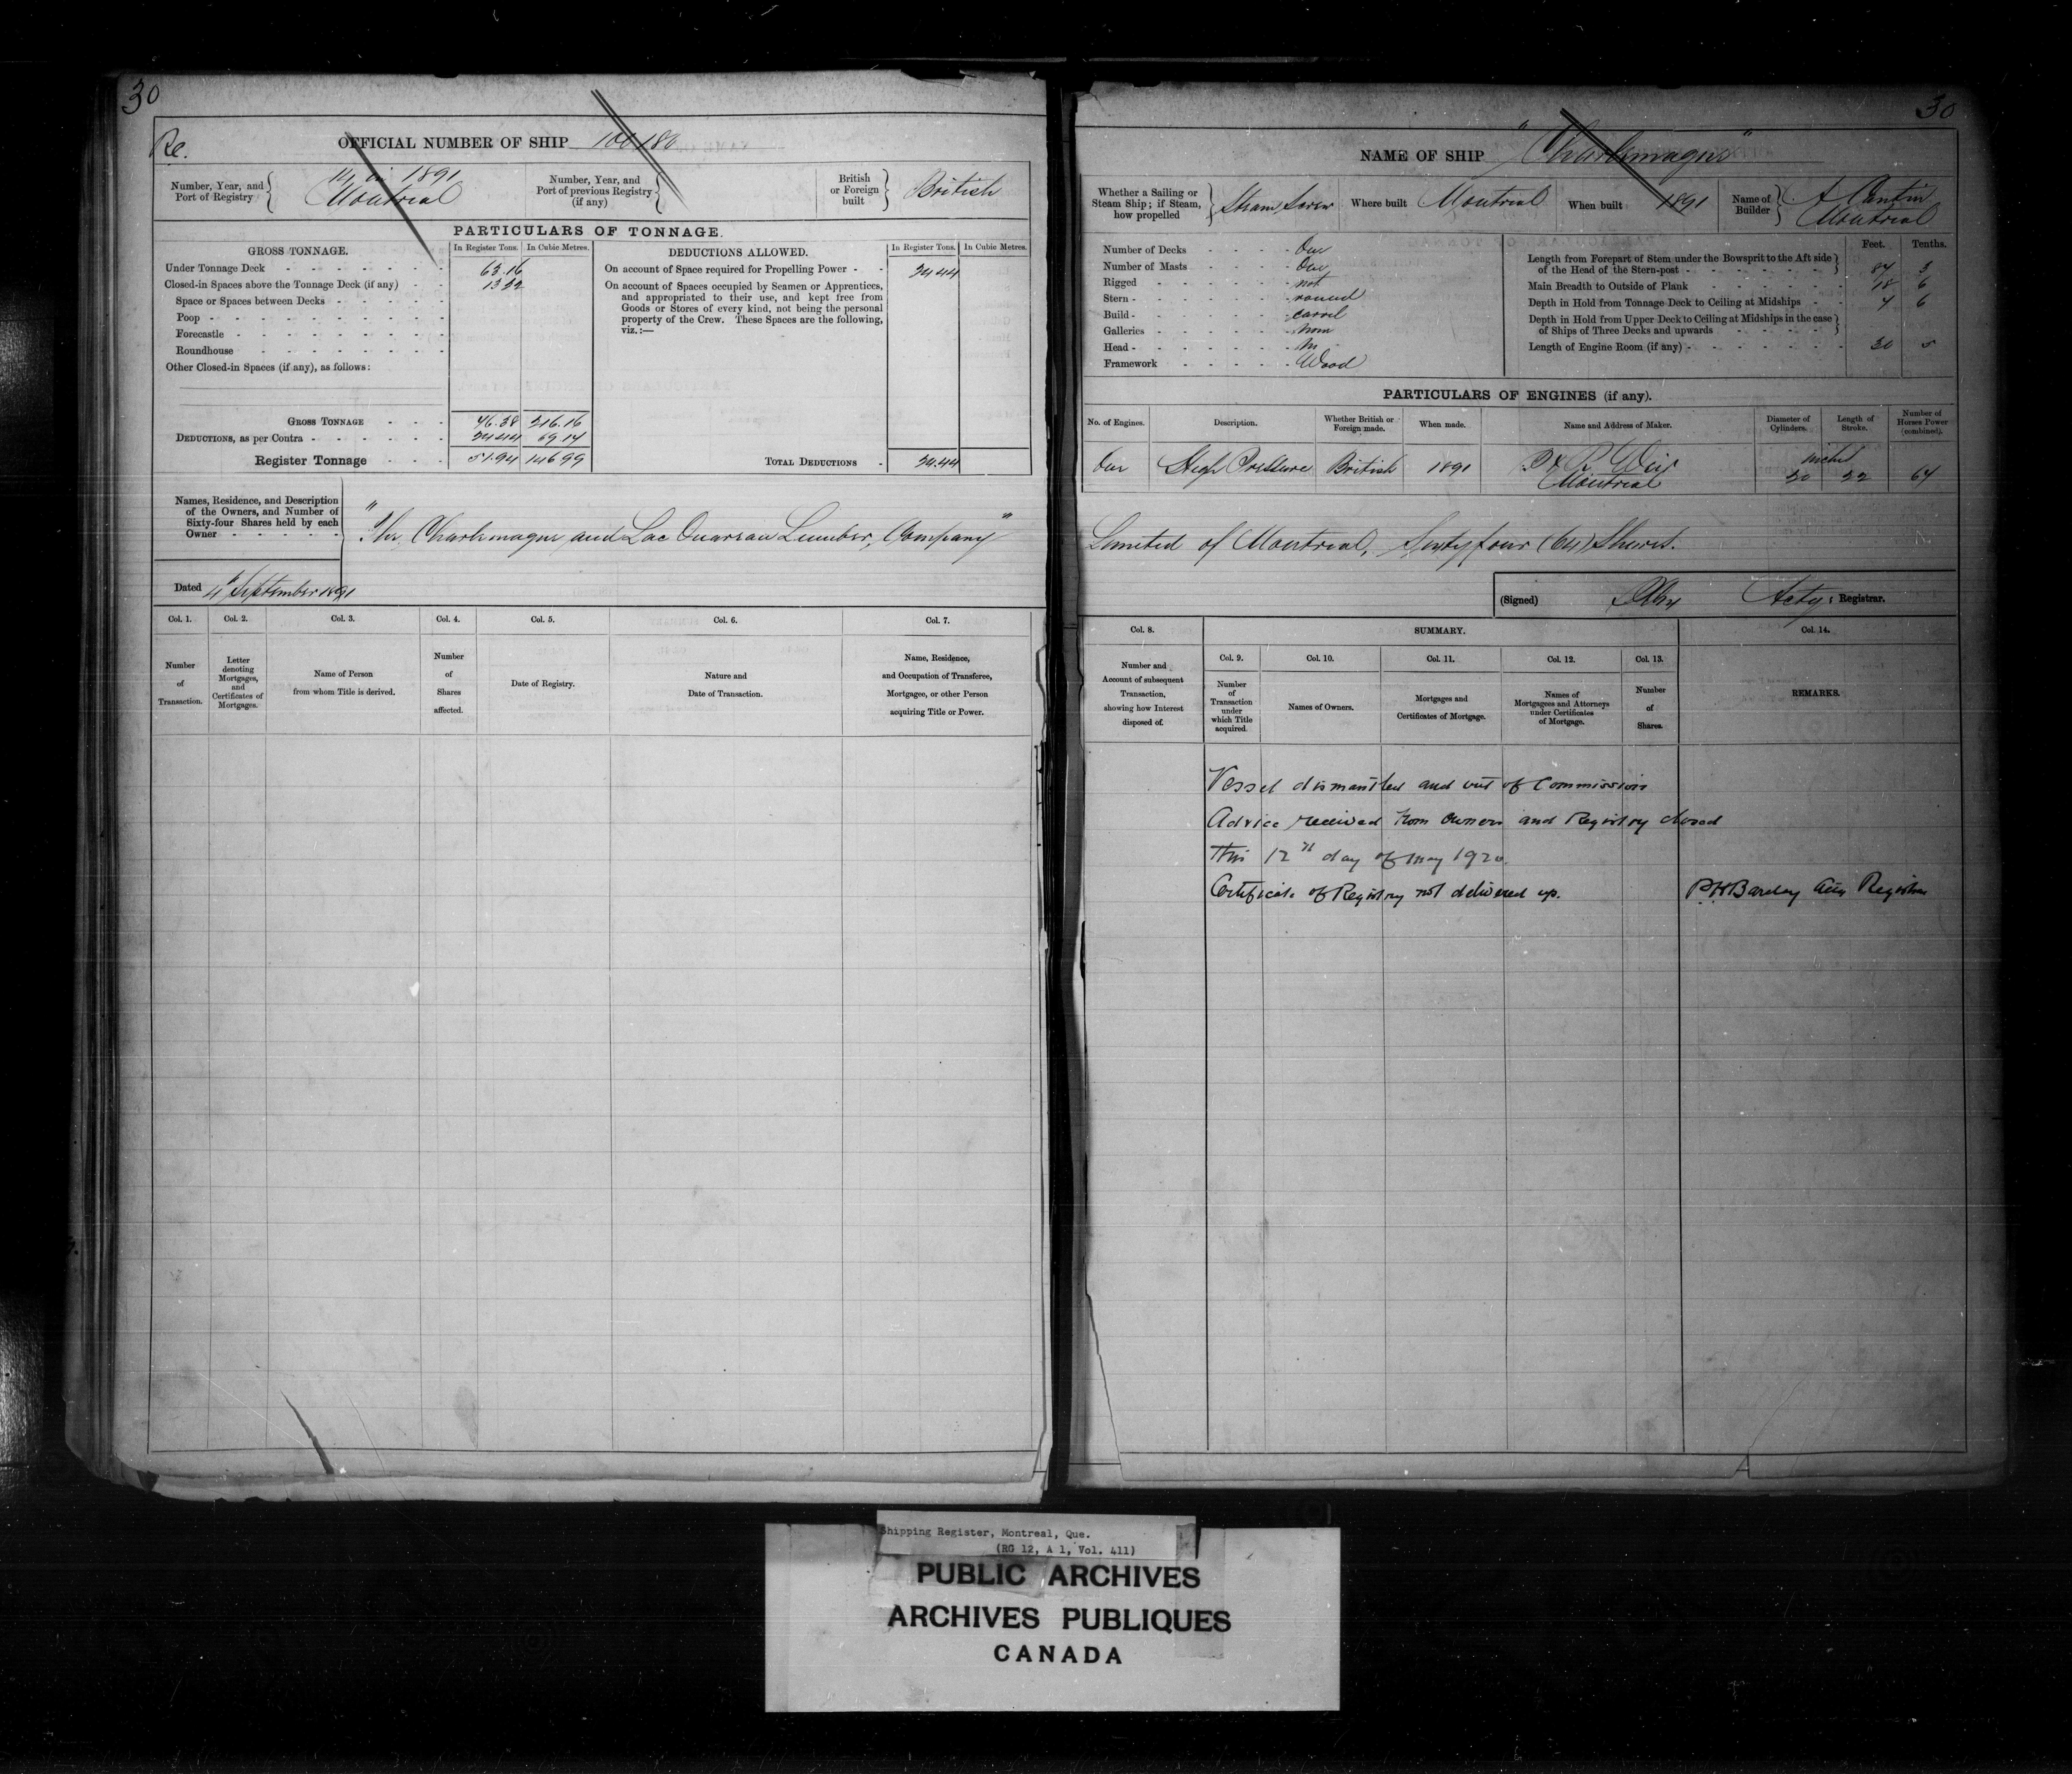 30
Re.
OFFICIAL NUMBER OF SHIP 100180
Number, Year, and Port of Registry
14 in 1891
Montreal
Number, Year, and Port of previous Registry (if any)
British or Foreign built
British
PARTICULARS OF TONNAGE.
GROSS TONNAGE.
In Register Tons.
In Cubic Metres.
Under Tonnage Deck 63.16
Closed-in Spaces above the Tonnage Deck (if any) 13 22
Space or Spaces between Decks
Poop
Forecastle
Roundhouse
Other Closed-in Spaces (if any), as follows:
GROSS TONNAGE 76.38 216.16
DEDUCTIONS, as per Contra 24.44 69.17
Register Tonnage 51.94 146 99
DEDUCTIONS ALLOWED.
In Register Tons.
In Cubic Metres.
On account of Space required for Propelling Power 24.44
On account of Spaces occupied by Seamen or Apprentices,
and appropriated to their use, and kept free from
Goods or Stores of every kind, not being the personal
property of the Crew. These Spaces are the following,
viz.:—
TOTAL DEDUCTIONS 24.44
Names, Residence, and Description
of the Owners, and Number of
Sixty-four Shares held by each
Owner
"The Charlemagne and Lac Ouareau Lumber, Company"
Dated 4th September 1891
Col. 1.
Number of Transaction.
Col. 2.
Letter denoting Mortgages, and Certificates of Mortgages.
Col. 3.
Name of Person from whom Title is derived.
Col. 4.
Number of Shares affected.
Col. 5.
Date of Registry.
Col. 6.
Nature and Date of Transaction.
Col. 7.
Name, Residence, and Occupation of Transferee, Mortgagee, or other Person acquiring Title or Power.
30
NAME OF SHIP "Charlemagne"
Whether a Sailing or Steam Ship; if Steam, how propelled
Steam Screw
Where built Montreal
When built 1891
Name of Builder
A Cantin
Montreal
Number of Decks One
Number of Masts One
Rigged not
Stern round
Build carvel
Galleries none
Head no
Framework Wood
Feet. Tenths.
Length from Forepart of Stem under the Bowsprit to the Aft side
of the Head of the Stern-post 87 3
Main Breadth to Outside of Plank 18 6
Depth in Hold from Tonnage Deck to Ceiling at Midships 7 6
Depth in Hold from Upper Deck to Ceiling at Midships in the case
of Ships of Three Decks and upwards
Length of Engine Room (if any) 20 5
PARTICULARS OF ENGINES (if any).
No. of Engines.
Description.
Whether British or Foreign made.
When made.
Name and Address of Maker.
Diameter of Cylinders.
Length of Stroke.
Number of Horses Power (combined).
One High Pressure British 1891
Weir
Montreal
inches
20 22 67
Limited of Montreal, Sixtyfour (64) Shares.
(Signed)
Actg: Registrar.
Col. 8.
Number and Account of subsequent Transaction, showing how Interest disposed of.
SUMMARY.
Col. 9.
Number of Transaction under which Title acquired.
Col. 10.
Names of Owners.
Col. 11.
Mortgages and Certificates of Mortgage.
Col. 12.
Names of Mortgagees and Attorneys under Certificates of Mortgage.
Col. 13.
Number of Shares.
Col. 14.
REMARKS.
Vessel dismantled and out of Commission
Advice received from owners and Registry closed
This 12th day of May 1920.
Certificate of Registry not delivered up.
P.H Barclay Registrar
Shipping Register, Montreal, Que.
(RG 12, A 1, Vol. 411)
PUBLIC ARCHIVES
ARCHIVES PUBLIQUES
CANADA